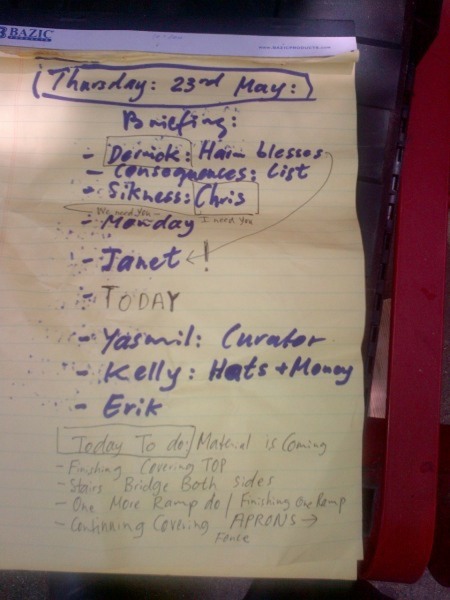 BAZIC
WWW.BAZICPRODUCTS.COM
Thursday: 23rd May:
Briefing:
- Derrick: Hair blesses
- Consequences: List
- Sikness: Chris
We need you - I need you
- Monday
- Janet !
- TODAY
- Yasmil: Curator
- Kelly: Hats + Money
- Erik
Today To do: Materiel is Coming
- Finishing Covering TOP
- Stairs Bridge Both sides
- One More Ramp do / Finishing One Ramp
- Continuing Covering APRONS →
Fance